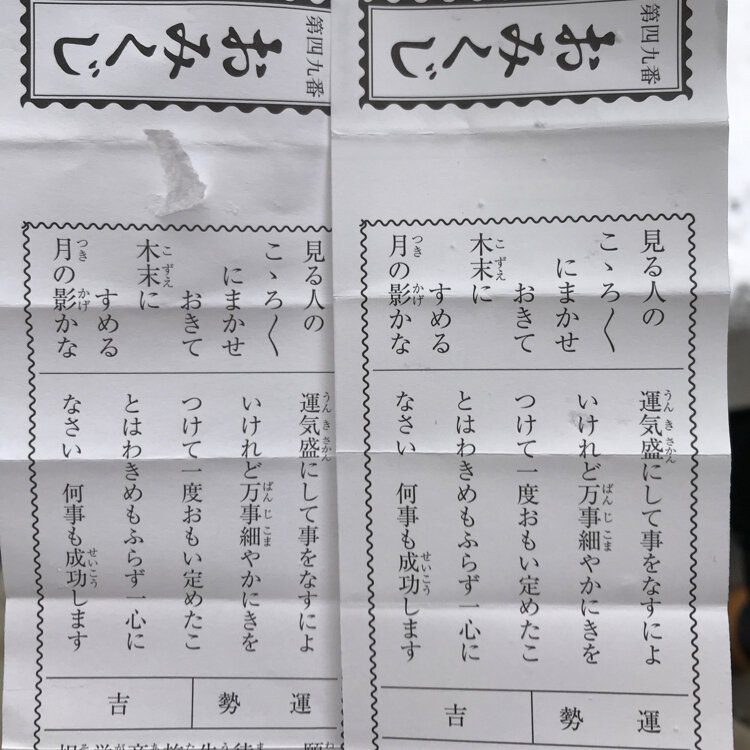 第四九番
おみくじ
見る人の
こゝろ〱
にまかせ
おきて
木末に
すめる
月の影かな
運気盛にして事をなすによ
いけれど万事細やかにきを
つけて一度おもい定めたこ
とはわきめもふらず一心に
なさい 何事も成功します
運勢
吉
第四九番
おみくじ
見る人の
こゝろ〱
にまかせ
おきて
木末に
すめる
月の影かな
運気盛にして事をなすによ
いけれど万事細やかにきを
つけて一度おもい定めたこ
とはわきめもふらず一心に
なさい 何事も成功します
運勢
吉